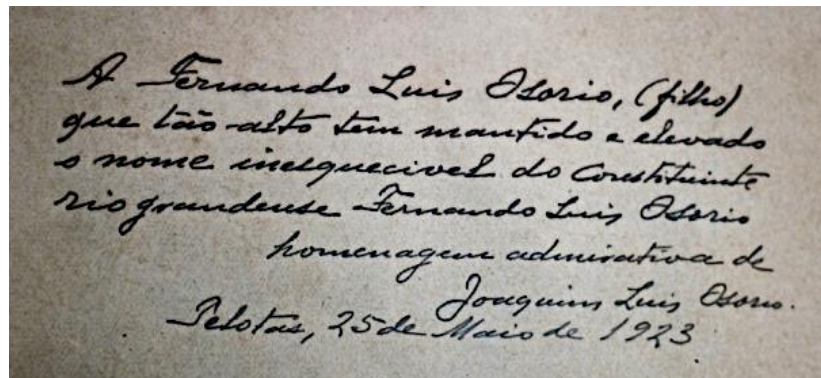 A Fernando Luis Osorio, (filho)
que tão alto tem mantido e elevado
o nome inesquecivel do Constituinte
rio grandense Fernando Luis Osorio
homenagem admirativa de
Joaquim Luis Osorio.
Pelotas, 25 de Maio de 1923